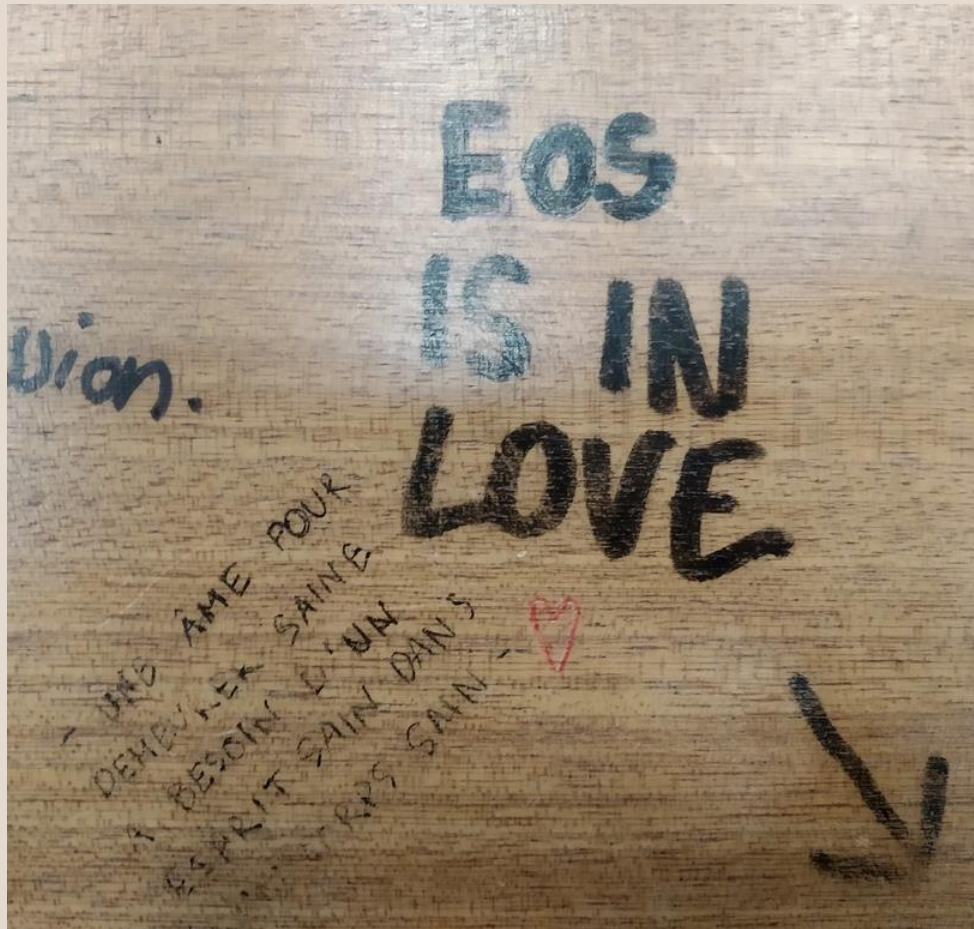 EOS
IS IN
LOVE
- UNE ÂME POUR
DEMEURER SAINE
A BESOIN D'UN
ESPRIT SAIN DANS
RPS SAIN -